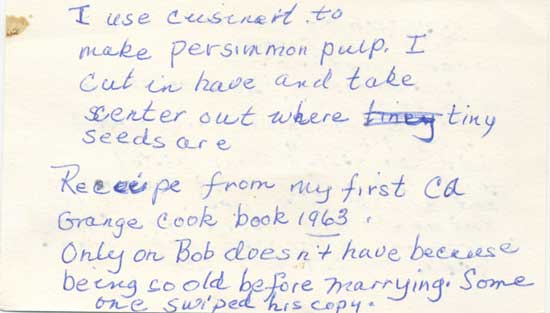 I use cusinart to
make persimmon pulp. I
cut in have and take
scenter out where tiney tiny
seeds are
Receipe from my first Ca
Grange cook book 1963.
Only on Bob doesn't have because
being so old before marrying. Some
one swiped his copy.